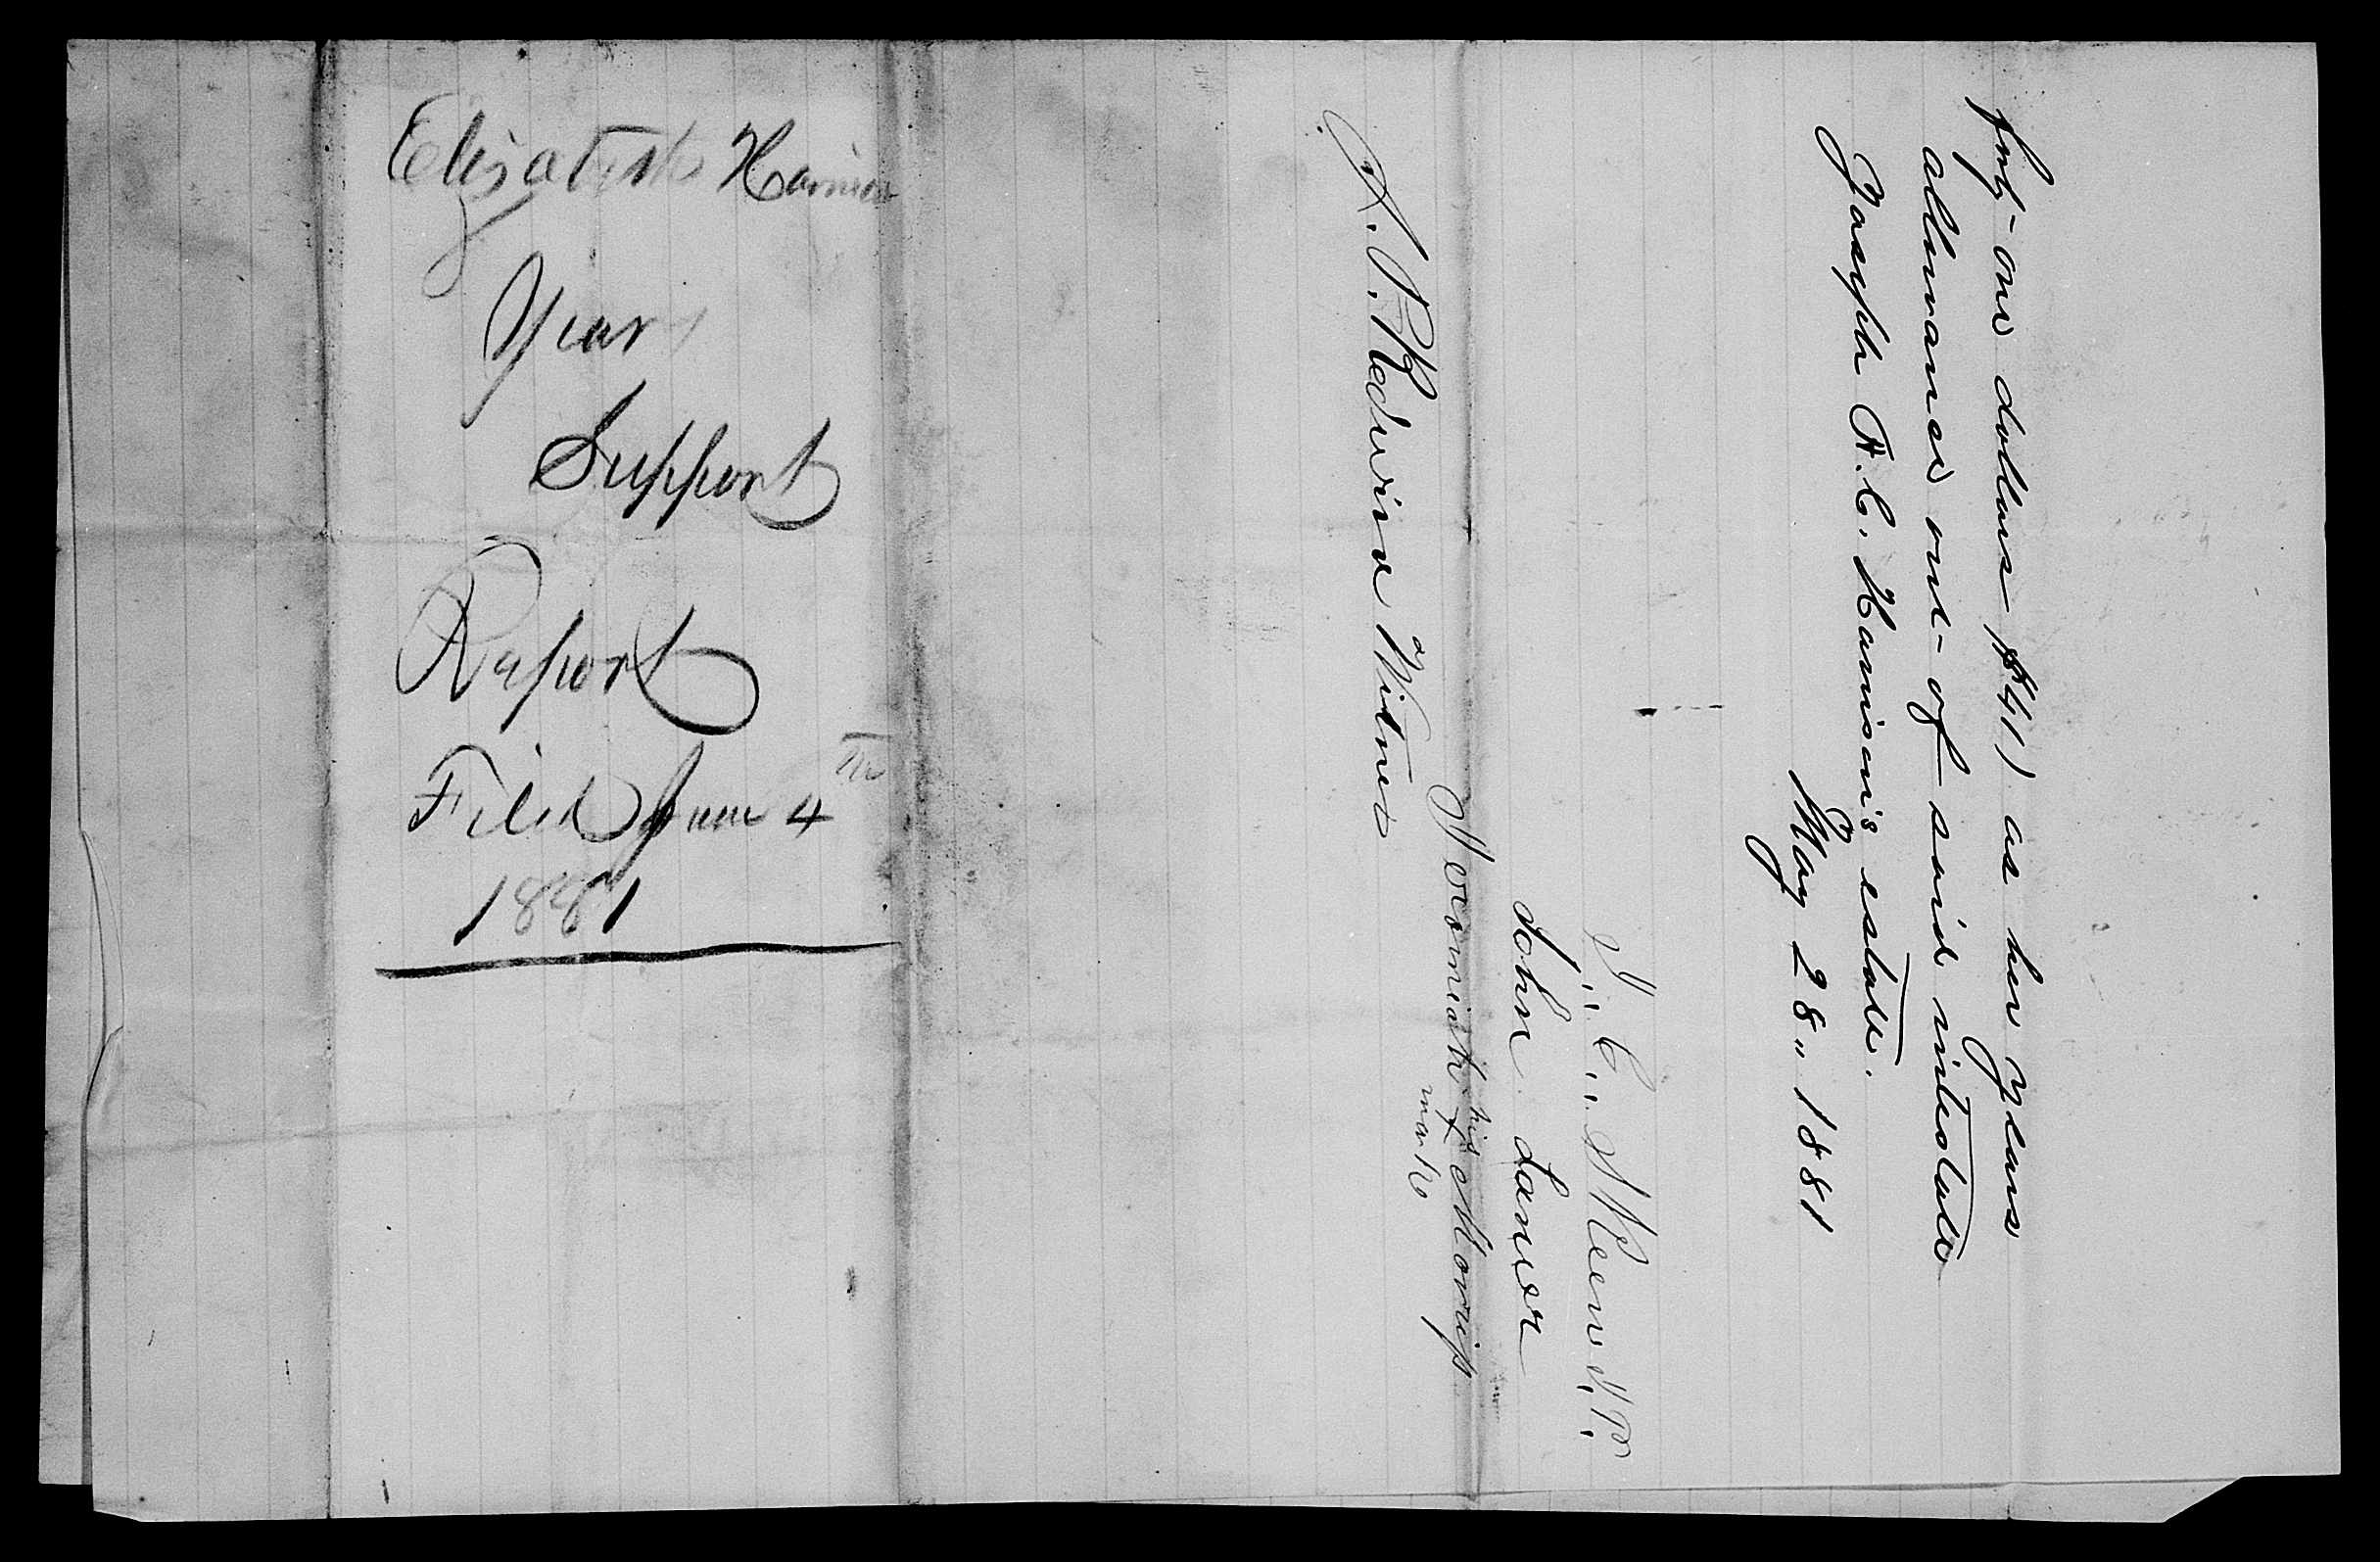 Elizabeth Harrison
Years
Support
Report
Filed June 4th
1881
forty-one dollars $41) as her years
allowance out of said intestate
Joseph A. C. Harrison's estate.
May 28" 1881
John Laner
his
Morriss
mark
A. P. Redwine a Witness